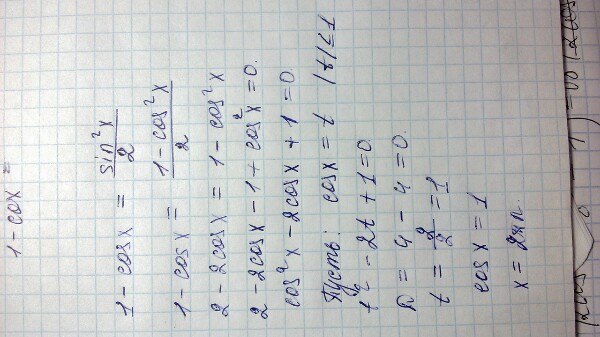 1 - cox =
1 - cosx = sin²x / 2
1 - cosx = 1 - cos²x / 2
2 - 2cosx = 1 - cos²x
2 - 2cosx - 1 + cos²x = 0.
cos²x - 2cosx + 1 = 0.
Пусть: cosx = t |t| ≤ 1
t² - 2t + 1 = 0.
D = 4 - 4 = 0.
t = 2/2 = 1
cosx = 1
x = 2πn.